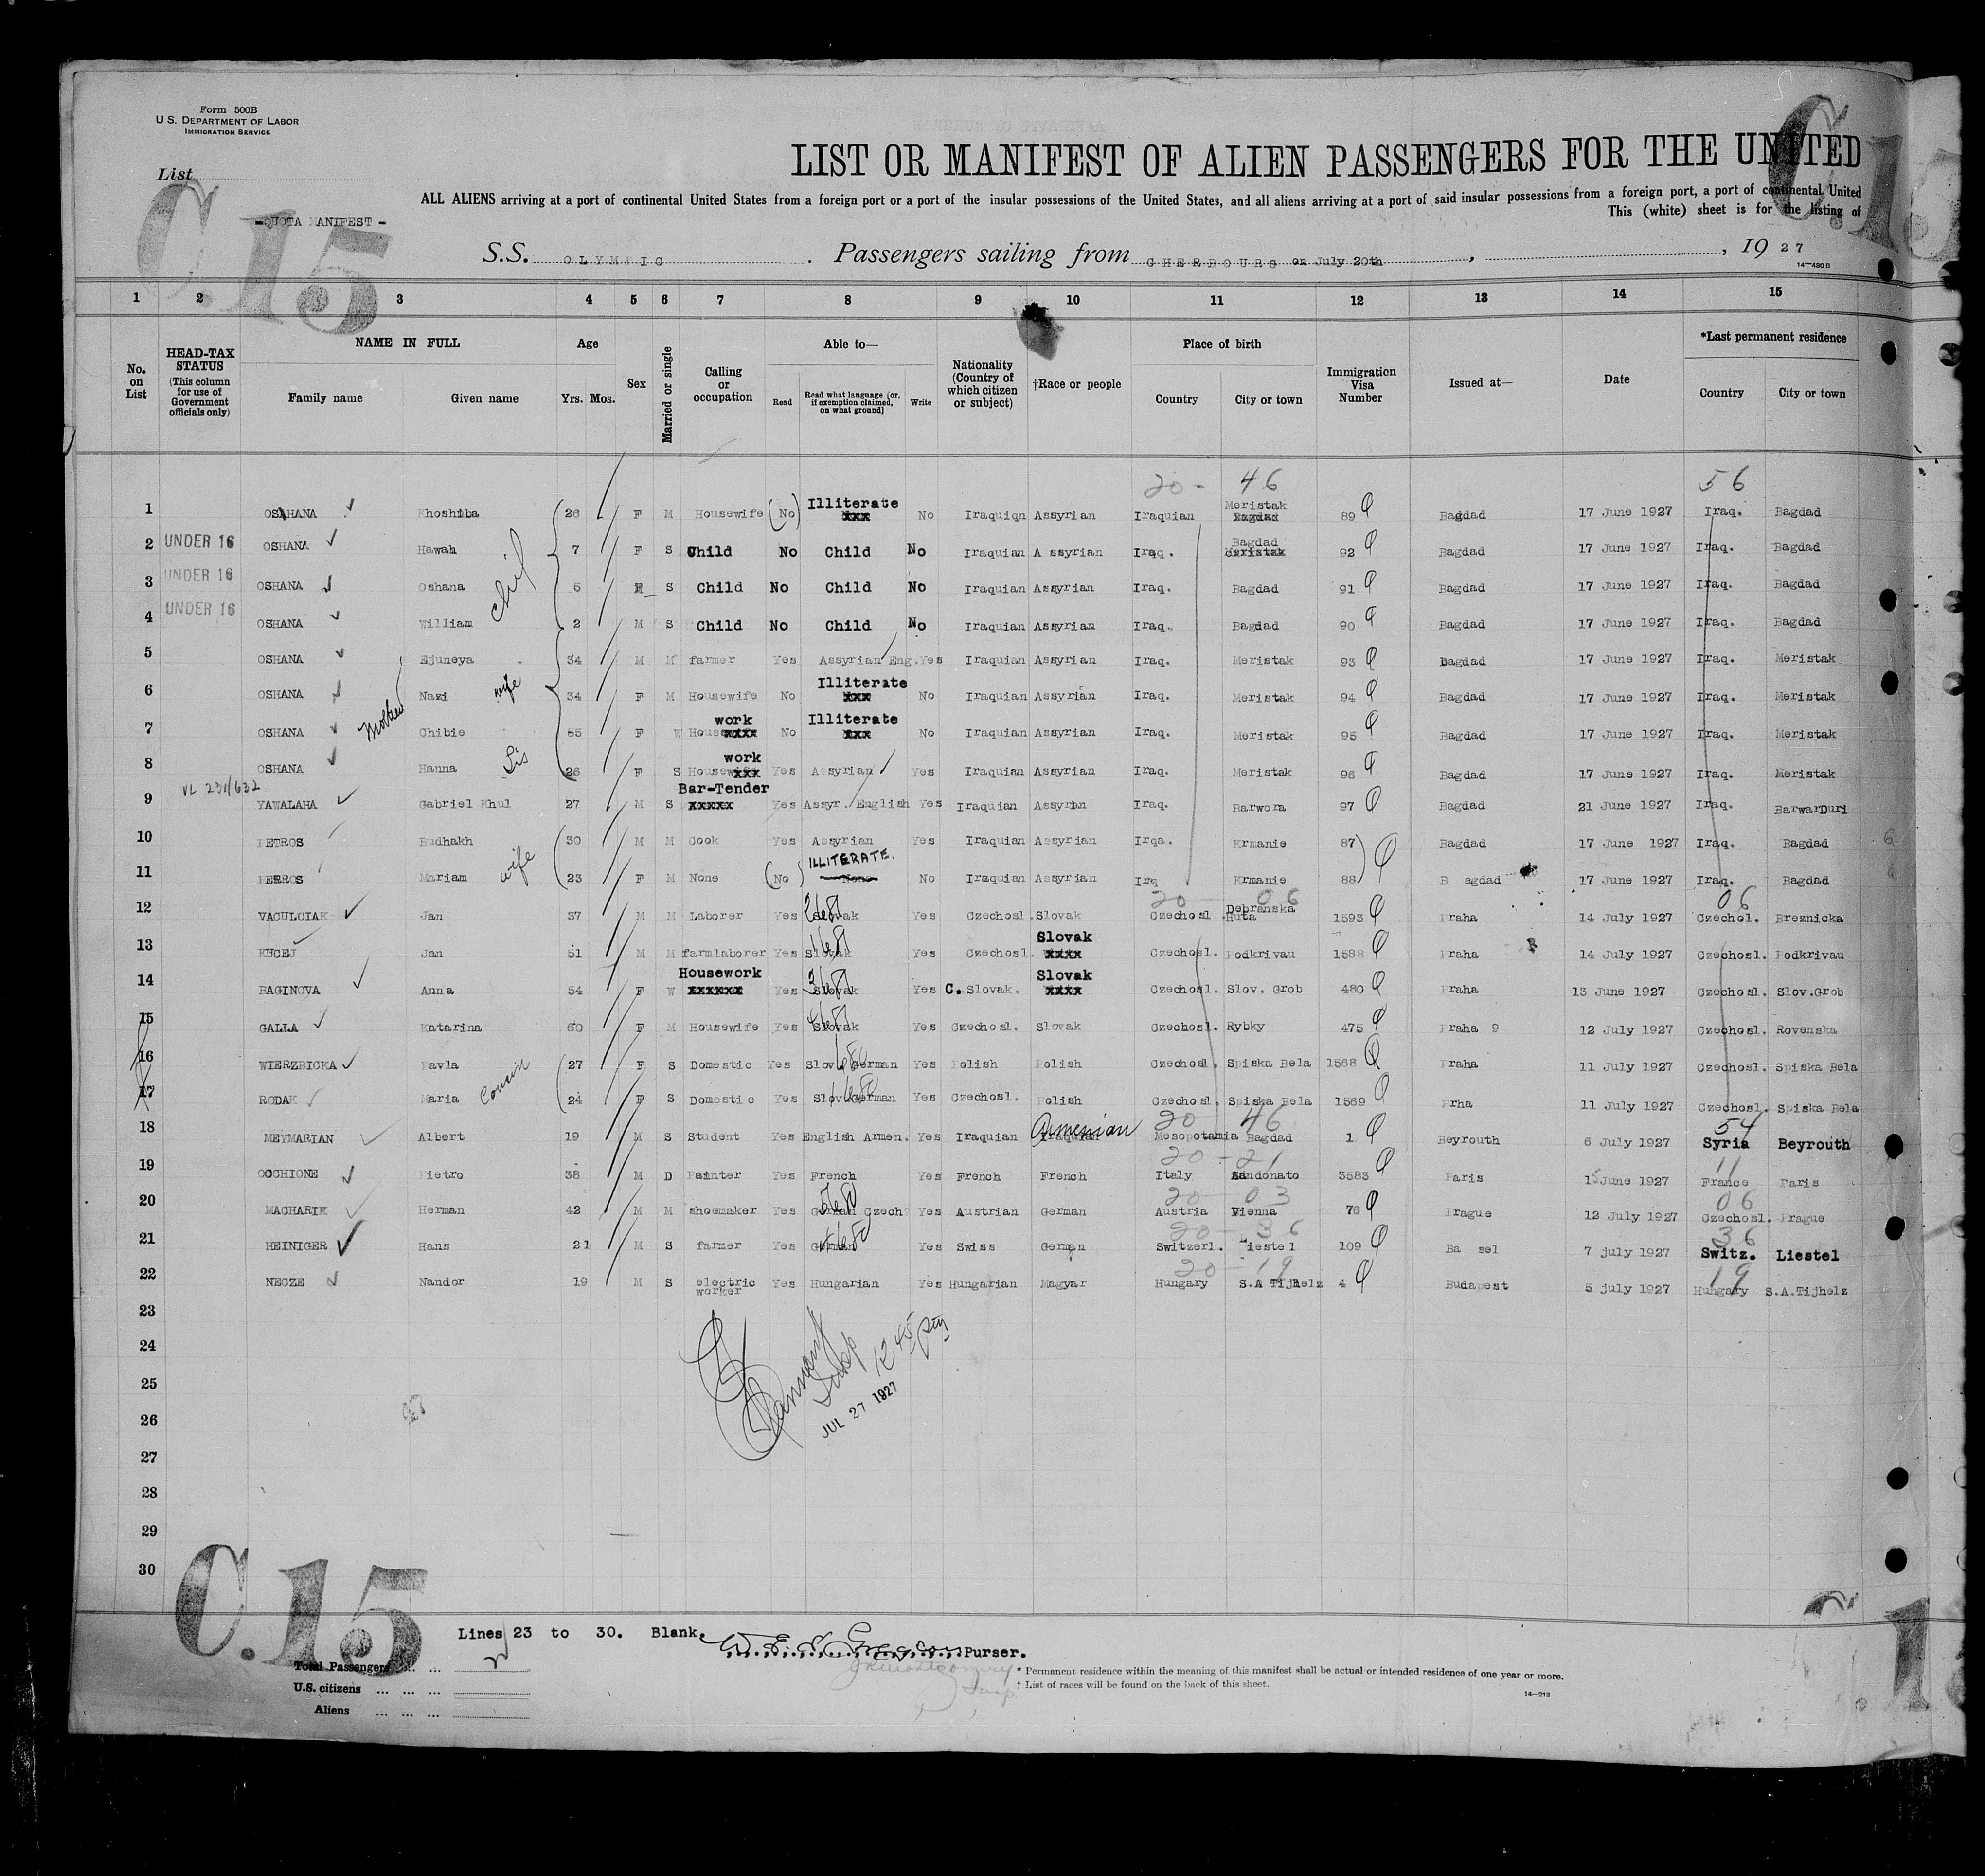 Form 500B
U S. DEPARTMENT OF LABOR
IMMIGRATION SERVICE
LIST OR MANIFEST OF ALIEN PASSENGERS FOR THE UNITED
List
C.15
C.15
ALL ALIENS arriving at a port of continental United States from a foreign port or a port of the insular possessions of the United States, and all aliens arriving at a port of said insular possessions from a foreign port, a port of continental United
This (white) sheet is for the listing of
-QUOTA MANIFEST -
S.S. OLYMPIC . Passengers sailing from CHERBOURG on July 20th , , 19 27
14—430B
1 2 3 4 5 6 7 8 9 10 11 12 13 14 15
No. on List HEAD-TAX STATUS (This column for use of Government officials only) NAME IN FULL Family name Given name Age Yrs. Mos. Sex Married or single Calling or occupation Able to— Read Read what language [or, if exemption claimed, on what ground] Write Nationality (Country of which citizen or subject) †Race or people Place of birth Country City or town Immigration Visa Number Issued at— Date *Last permanent residence Country City or town
20 - 46 56
1 OSHANA Khoshiba 26 F M Housewife (No) Illiterate xxx No Iraquiqn Assyrian Iraquian Meristak Bagdad 89 Bagdad 17 June 1927 Iraq. Bagdad
2 UNDER 16 OSHANA Hawah 7 F S Child No Child No Iraquian A ssyrian Iraq. Bagdad Meristak 92 Bagdad 17 June 1927 Iraq. Bagdad
3 UNDER 16 OSHANA Oshana chil 5 M S Child No Child No Iraquian Assyrian Iraq. Bagdad 91 Bagdad 17 June 1927 Iraq. Bagdad
4 UNDER 16 OSHANA William 2 M S Child No Child No Iraquian Assyrian Iraq. Bagdad 90 Bagdad 17 June 1927 Iraq. Bagdad
5 OSHANA Ejuneya 34 M M farmer Yes Assyrian Eng. Yes Iraquian Assyrian Iraq. Meristak 93 Bagdad 17 June 1927 Iraq. Meristak
6 OSHANA Nazi wife 34 F M Housewife No Illiterate xxx No Iraquian Assyrian Iraq. Meristak 94 Bagdad 17 June 1927 Iraq. Meristak
7 OSHANA Mother Chibie 65 F W House work xxxx No Illiterate xxx No Iraquian Assyrian Iraq. Meristak 95 Bagdad 17 June 1927 Iraq. Meristak
8 OSHANA Hanna Sis 26 F S House work xxx Yes Assyrian Yes Iraquian Assyrian Iraq. Meristak 96 Bagdad 17 June 1927 Iraq. Meristak
VL 231/632
9 YAWALAHA Gabriel Khul 27 M S Bar-Tender xxxxx Yes Assyr. English Yes Iraquian Assyrin Iraq. Barwora 97 Bagdad 21 June 1927 Iraq. BarwarDuri
10 PETROS Budhakh 30 M M Cook Yes Assyrian Yes Iraquian Assyrian Irqa. Ermanie 87 Bagdad 17 June 1927 Iraq. Bagdad
11 PETROS Mariam wife 23 F M None (No) ILLITERATE. None No Iraquian Assyrian Irq Ermanie 88 B agdad 17 June 1927 Iraq. Bagdad
20 06 06
12 VACULCIAK Jan 37 M M Laborer Yes Slovak Yes Czechosl. Slovak Czechosl. Debranska Huta 1593 Praha 14 July 1927 Czechol. Breznicka
13 KUCEJ Jan 51 M M farmlaborer Yes Slovak Yes Czechosl. Slovak xxxx Czechosl. Podkrivau 1588 Praha 14 July 1927 Czechosl. Podkrivau
14 BAGINOVA Anna 54 F W Housework xxxxxx Yes Slovak Yes C. Slovak. Slovak xxxx Czechosl. Slov. Grob 480 Praha 13 June 1927 Czechosl. Slov.Grob
15 GALLA Katarina 60 F M Housewife Yes Slovak Yes Czechosl. Slovak Czechosl. Rybky 475 Praha 9 12 July 1927 Czechosl. Rovenska
16 WIERZBICKA Pavla 27 F S Domestic Yes Slov German Yes Polish Polish Czechosl. Spiska Bela 1568 Praha 11 July 1927 Czechosl. Spiska Bela
17 RODAK Maria Cousin 24 F S Domestic Yes Slov German Yes Czechosl. Polish Czechosl. Spiska Bela 1569 Prha 11 July 1927 Czechosl. Spiska Bela
20 46 54
18 MEYMARIAN Albert 19 M S Student Yes English Armen. Yes Iraquian Armenian Mesopotamia Bagdad 1 Beyrouth 6 July 1927 Syria Beyrouth
20 - 21 11
19 OCCHIONE Pietro 38 M D Painter Yes French Yes French French Italy Sandonato 3583 Paris 15 June 1927 France Paris
20 03 06
20 MACHARIK Herman 42 M M shoemaker Yes German Czech Yes Austrian German Austria Vienna 76 Prague 12 July 1927 Czechosl. Prague
20 - 36 36
21 HEINIGER Hans 21 M S farmer Yes German Yes Swiss German Switzerl. Liestel 109 Ba sel 7 july 1927 Switz. Liestel
20 19 19
22 NECZE Nandor 19 M S electric worker Yes Hungarian Yes Hungarian Magyar Hungary S.A Tijhelz 4 Budapest 5 july 1927 Hungary S.A.Tijhelz
23
24
25
26
27
28
29
30
12 45 pm
JUL 27 1927
C.15
Lines 23 to 30. Blank.
Purser.
Total Passengers ... ...
U.S. citizens ... ... ...
Aliens ... ... ...
* Permanent residence within the meaning of this manifest shall be actual or intended residence of one year or more.
† List of races will be found on the back of this sheet.
14—213